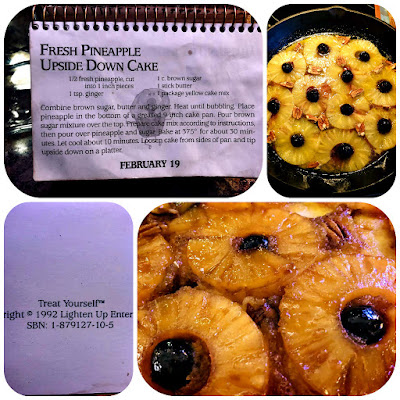 FRESH PINEAPPLE
UPSIDE DOWN CAKE
1/2 fresh pineapple, cut
into 1 inch pieces
1 tsp. ginger
1 c. brown sugar
1 stick butter
1 package yellow cake mix
Combine brown sugar, butter and ginger. Heat until bubbling. Place
pineapple in the bottom of a greased 9 inch cake pan. Pour brown
sugar mixture over the top. Prepare cake mix according to instructions,
then pour over pineapple and sugar. Bake at 375° for about 30 min-
utes. Let cool about 10 minutes. Loosen cake from sides of pan and tip
upside down on a platter.
FEBRUARY 19
Treat Yourself™
right © 1992 Lighten Up Enter
SBN: 1-879127-10-5